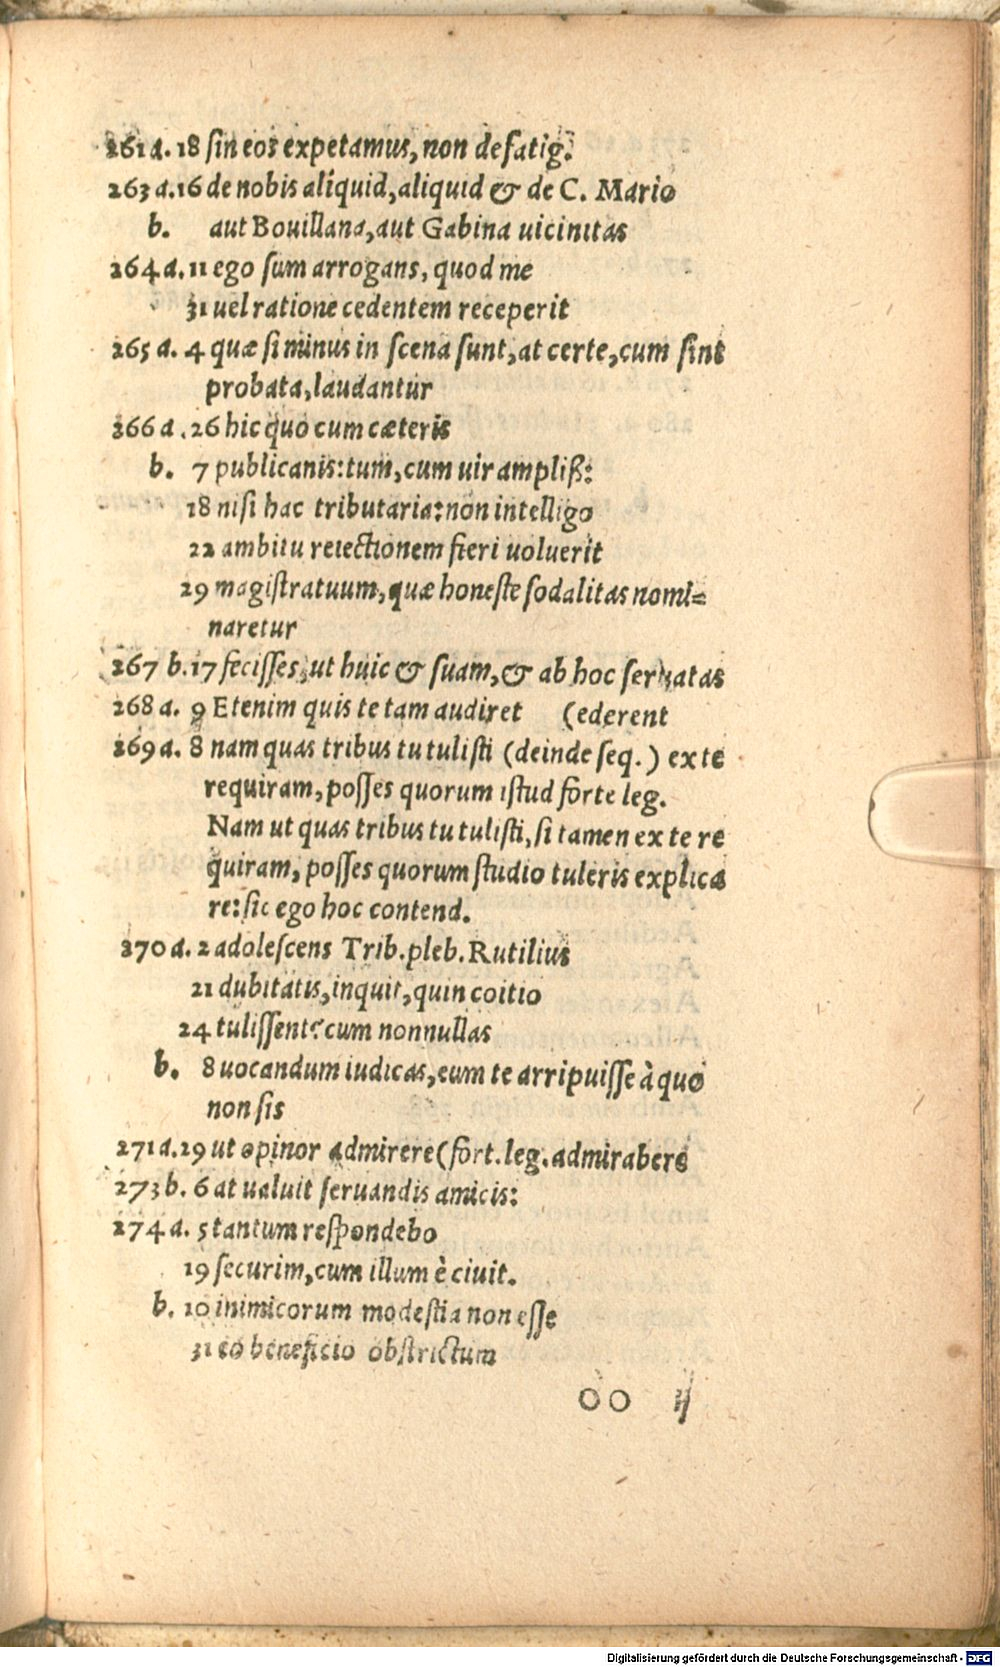 261 a. 18 ſin eos expetamus, non defatig.
263 a. 16 de nobis aliquid, aliquid & de C. Mario
b. aut Bouillana, aut Gabina uicinitas
264 a. 11 ego ſum arrogans, quod me
31 uel ratione cedentem receperit
265 a. 4 quæ ſi minus in ſcena ſunt, at certe, cum ſint
probata, laudantur
266 a. 26 hic quo cum cæteris
b. 7 publicanis: tum, cum uir ampliß:
18 niſi hac tributaria: non intelligo
22 ambitu reiectionem fieri uoluerit
29 magiſtratuum, quæ honeſte ſodalitas nomi=
naretur
267 b. 17 feciſſes, ut huic & ſuam, & ab hoc ſeruatas
268 a. 9 Etenim quis te tam audiret (ederent
269 a. 8 nam quas tribus tu tuliſti (deinde ſeq.) ex te
requiram, poſſes quorum iſtud forte leg.
Nam ut quas tribus tu tuliſti, ſi tamen ex te re
quiram, poſſes quorum ſtudio tuleris explica
re: ſic ego hoc contend.
270 a. 2 adoleſcens Trib. pleb. Rutilius
21 dubitatis, inquit, quin coitio
24 tuliſſent? cum nonnullas
b. 8 uocandum iudicas, eum te arripuiſſe à quo
non ſis
271 a. 29 ut opinor admirere (fort. leg. admirabere
273 b. 6 at ualuit ſeruandis amicis:
274 a. 5 tantum reſpondebo
19 ſecurim, cum illum è ciuit.
b. 10 inimicorum modeſtia non eſſe
31 eo beneficio obſtrictum
OO ij
Digitalisierung gefördert durch die Deutsche Forschungsgemeinschaft - DFG